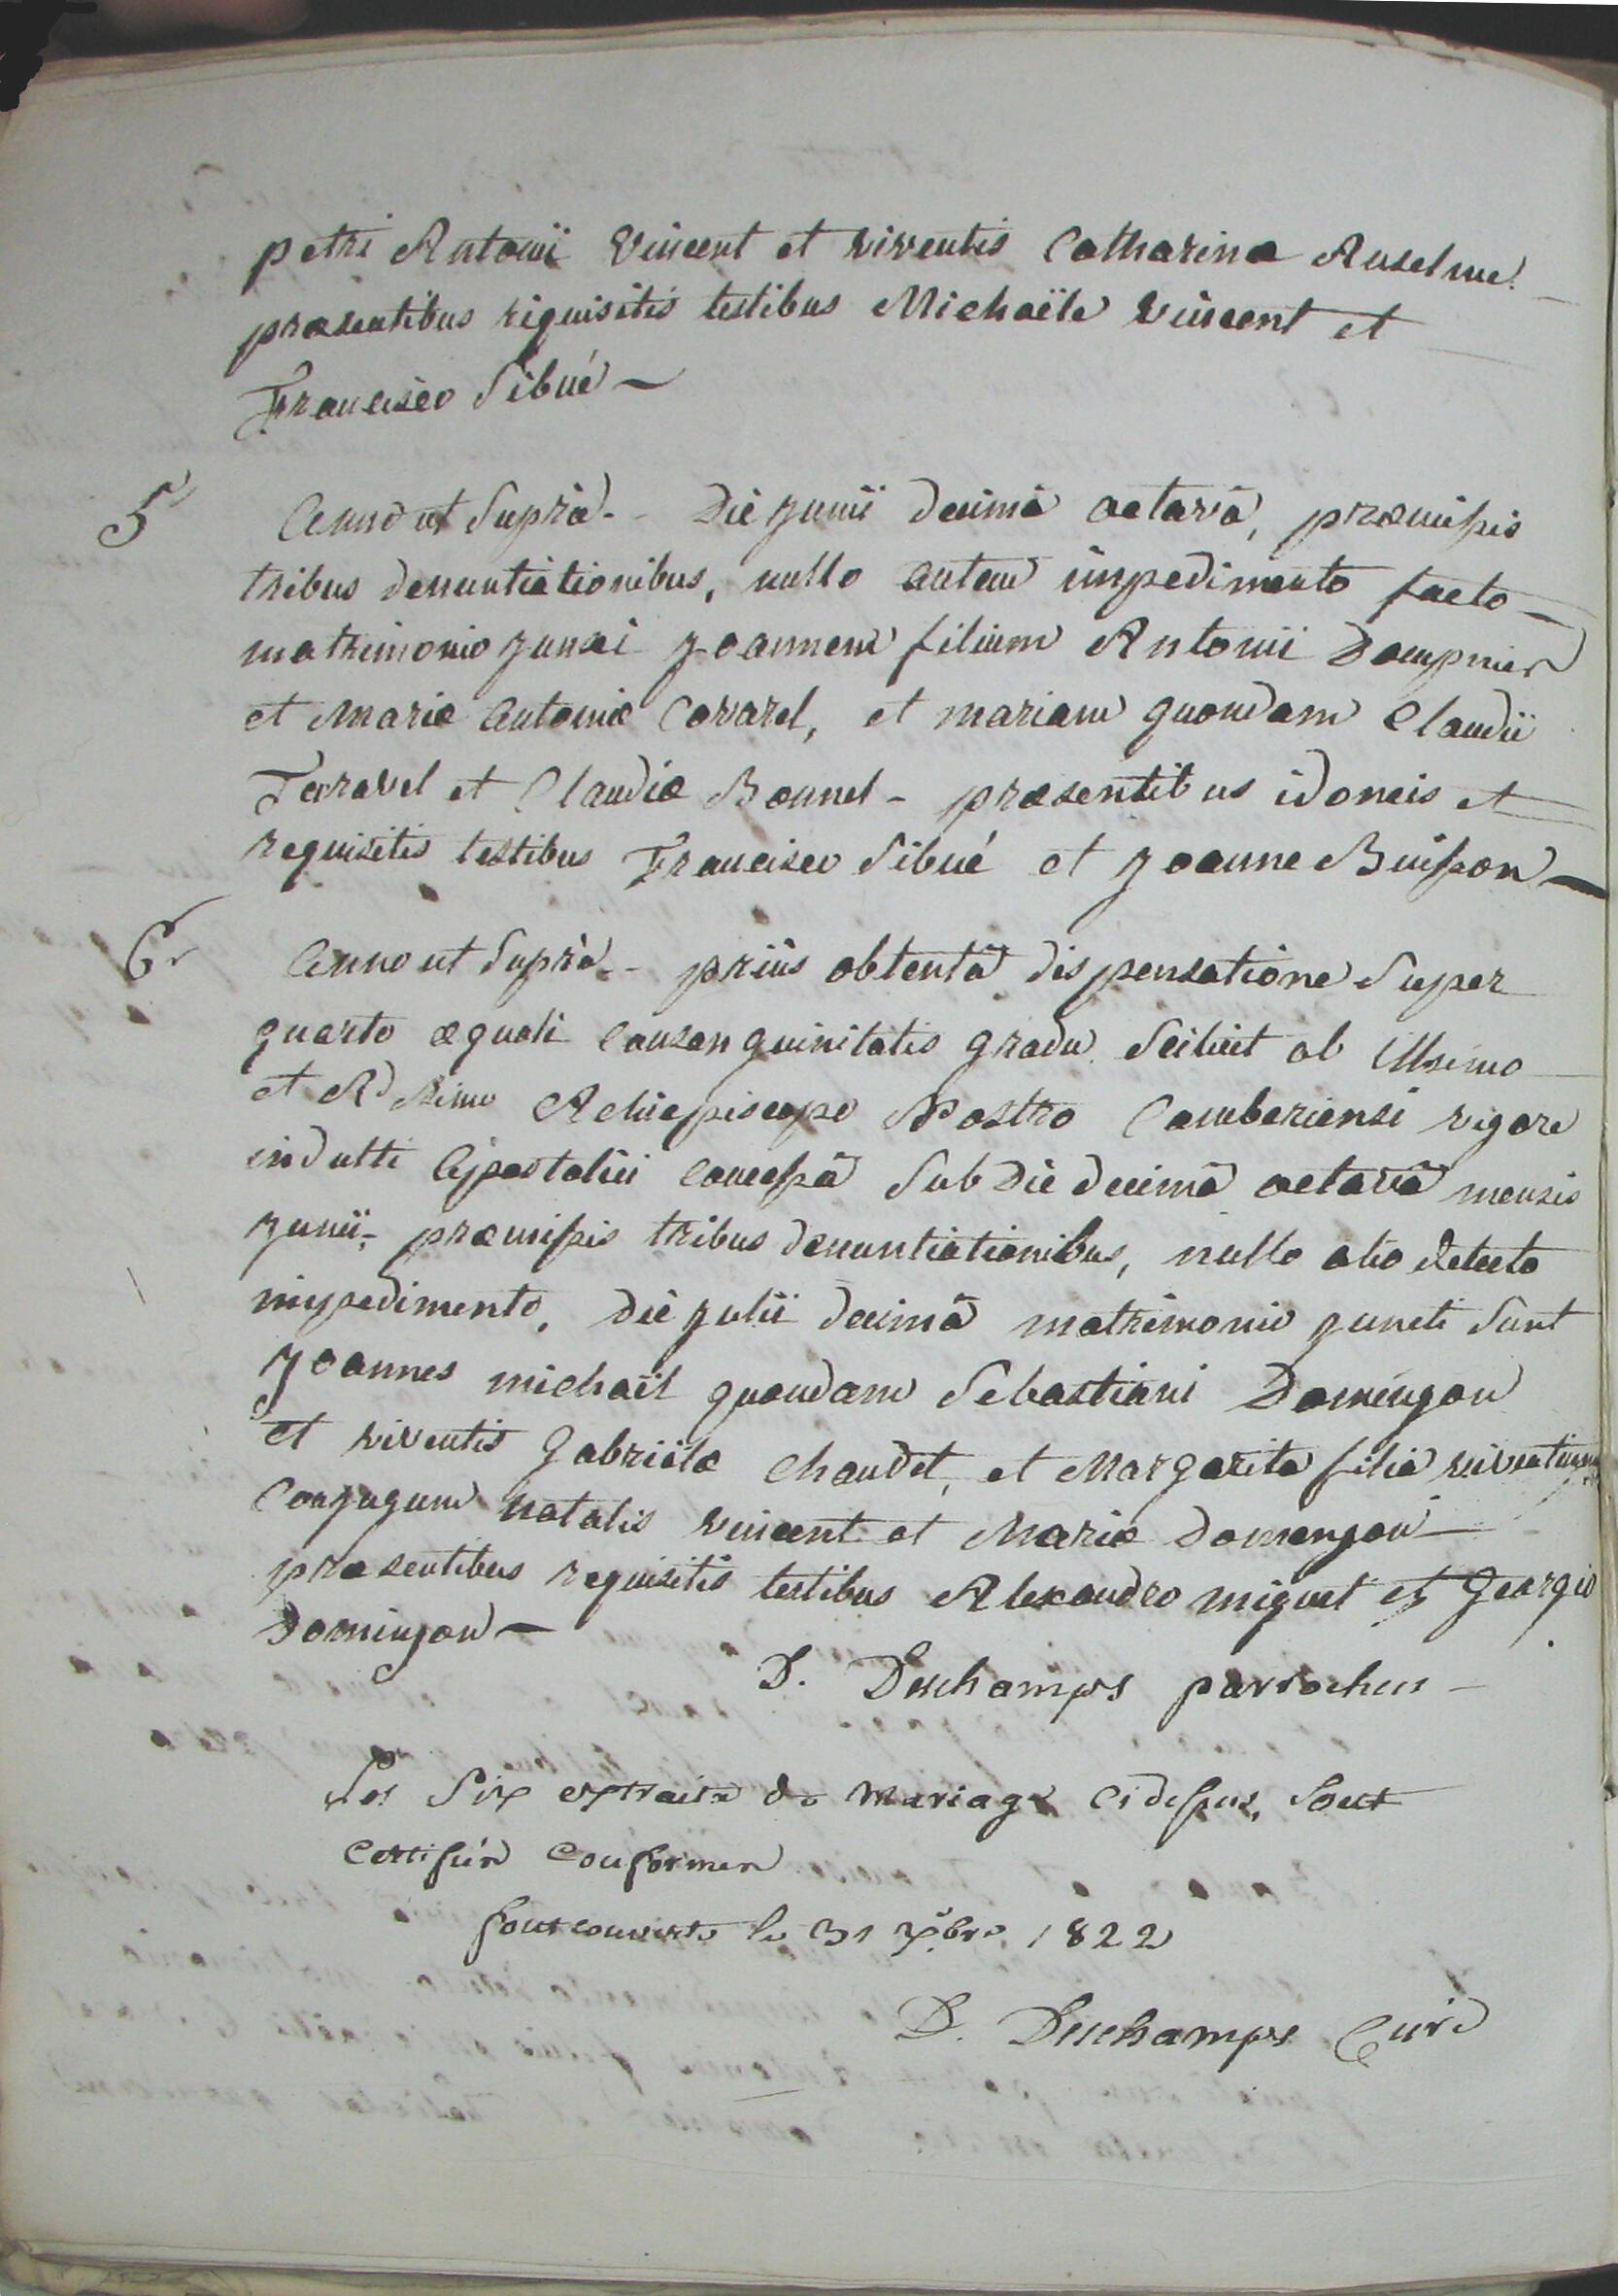 petri Antonii Vincent et viventis Catharinæ Anselme
præsentibus riquisitis testibus Michaële Vincent et
Francisco Sibué —
5 Anno ut Suprà - Die junii decimâ octavâ, præmissis
tribus denuntiationibus, nullo autem impedimento facto —
matrimonio junxi joannem filium Antonii Dompnier
et Mariæ Antoniæ Covarel, et mariam quondam Claudii
Taravel et Claudiæ Bonnel - præsentibus idoneis et
requisitis testibus Francisco Sibué et joanne Buisson —
6 Anno ut Suprà - priùs obtentâ dispensatione Super
quarto æquali consanguinitatis gradu Scilicet ab Illsimo
et Rdsimo Achiepiscopo Nostro Camberiensi vigore
indulti Apostolici concessâ Sub die decimâ octavâ mensis
junii, præmissis tribus denuntiationibus, nullo alio detecto
impedimento, die julii decimâ matrimonio juncti Sunt
joannes michaël quondam Sebastiani Domingon
et viventis gabrielæ Chaudet, et Margarita filia viventium
Conjugum Natalis Vincent et Mariæ Domengon —
præsentibus requisitis testibus Alexandro miguet et georgio
Domingon —
D. Deschamps parrochus -
Les Six extraits de Mariage cidessus, Sont
certifiés conformes
fontcouverte le 31 Xbre 1822
D. Deschamps Curé